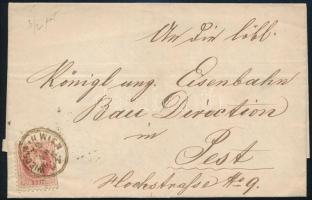 An die löbl.
Königl ung. Eisenbahn
Bau Direction
in
Pest
Hochstrasse No 9.
WIEN